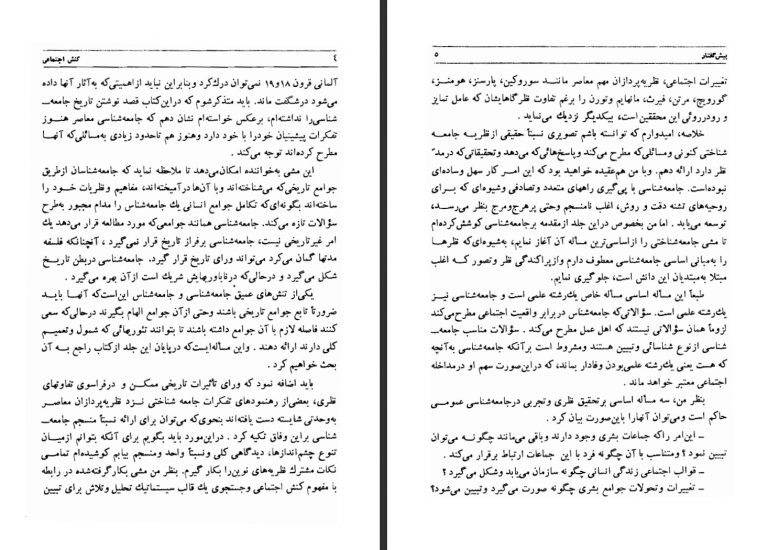 ٤
کنش اجتماعی
آلمانی قرون ۱۸و۱۹ نمی‌توان درك‌کرد وبنابراین نباید ازاهمیتی‌که به‌آثار آنها داده
می‌شود درشگفت ماند. باید متذکرشوم که دراین‌کتاب قصد نوشتن تاریخ جامعه‌ـ
شناسی‌را نداشته‌ام، برعکس خواسته‌ام نشان دهم که جامعه‌شناسی معاصر هنوز
تفکرات پیشینیان خودرا با خود دارد وهنوز هم تاحدود زیادی به‌مسائلی‌که آنهـا
مطرح کرده‌اند توجه می‌کند .
این مشی به‌خواننده امکان‌می‌دهد تا ملاحظه نماید که جامعه‌شناسان ازطریق
جوامع تاریخی‌که می‌شناخته‌اند وبا آن‌ها درآمیخته‌اند، مفاهیم ونظریات خـود را
ساخته‌اند بگونه‌ای‌که تکامل جوامع انسانی یك جامعه‌شناس را مدام مجبور به‌طرح
سؤالات تازه می‌کند. جامعه‌شناسی همانند جوامعی‌که مورد مطالعه قرار می‌دهد یك
امر غیرتاریخی نیست، جامعه‌شناسی برفراز تاریخ قرار نمی‌گیرد ، آنچنانکه فلسفه
مدتها گمان می‌کرد می‌تواند ورای تاریخ قرار گیرد. جامعه‌شناسی دربطن تاریـخ
شکل می‌گیرد و درحالی‌که درفناوریهایش شریك است ازآن بهره می‌گیرد .
یکی‌از تنش‌های عمیق جامعه‌شناسی و جامعه‌شناس این‌است‌که آنهـا بایـد
ضرورتاً تابع جوامع تاریخی باشند وحتی ازآن جوامع الهام بگیرند درحالی‌که سعی
کنند فاصله لازم با آن جوامع داشته باشند تا بتوانند تئوریهائی که شمول وتعمیـم
کلی دارند ارائه دهند . واین مسأله‌ایست‌که درپایان این جلد ازکتاب راجع به آن
بحث خواهیم کرد .
باید اضافه نمود که ورای تأثیرات تاریخی ممکـن و درفراسوی تفاوتهای
نظری، بعضی‌از رهنمودهای تفکرات جامعه شناختی نـزد نظریه‌پردازان معاصـر
به‌وحدتی شایسته دست یافته‌اند بنحوی‌که می‌توان برای ارائه نسبتاً منسجم جامعه‌ـ
شناسی براین وفاق تکیه کرد . دراین‌مورد باید بگویم برای آنکه بتوانم ازمیـان
تنوع چشم‌اندازها، دیدگاهی کلی ونسبتاً واحد ومنسجم بیابم کوشیده‌ام تمامـی
نکات مشترك نظریه‌های نوین‌را بکار گیرم. بنظر من مشی بکارگرفته‌شده در رابطه
با مفهوم کنش اجتماعی وجستجوی یك قالب سیستماتیك تحلیل وتلاش برای تبیین
پیش‌گفتار
۵
تغییرات اجتماعی، نظریه‌پردازان مهم معاصر ماننـد سوروکین، پارسنز، هومنـز،
گورویچ، مرتن، فیرث، مانهایم وتورن را برغم تفاوت نظرگاهایشان که عامل تمایز
و رودرروئی این محققین است، بیکدیگر نزدیك می‌نماید .
خلاصه، امیدوارم که توانسته باشم تصویری نسبتاً حقیقی ازنظریه جامعه
شناختی کنونی ومسائلی‌که مطرح می‌کند وپاسخ‌هائی‌که می‌دهد وتحقیقاتی‌که درمدّ
نظر دارد ارائه دهم. وبا من هم‌عقیده خواهید بود که این امـر کار سهل وساده‌ای
نبوده‌است. جامعه‌شناسی با پی‌گیری راههای متعدد وتصادفی وشیوه‌ای که بـرای
روحیه‌های تشنه دقت و روش، اغلب نامنسجم وحتی پرهرج‌ومرج بنظر می‌رسـد،
توسعه می‌یابد . اما من بخصوص دراین جلد ازمقدمه برجامعه‌شناسی کوشش‌کرده‌ام
تا مشی جامعه‌شناختی را ازاساسی‌ترین مسأله آن آغاز نمایم، به‌شیوه‌ای‌که نظرهـا
را به‌مبانی اساسی جامعه‌شناسی معطوف دارم وازپراکندگی نظر وتصور کـه اغلب
مبتلا به‌مبتدیان این دانش است، جلوگیری نمایم.
طبعاً این مسأله اساسی مسأله خاص یك‌رشته علمی است و جامعه‌شناسی نیـز
یك‌رشته علمی است. سؤالاتی‌که جامعه‌شناس دربرابر واقعیت اجتماعی مطرح‌می‌کند
لزوماً همان سؤالاتی نیستند که اهل عمل مطرح می‌کند . سؤالات مناسب جامعه‌ـ
شناسی ازنوع شناسائی وتبیین هستند ومشروط است برآنکه جامعه‌شناسی به‌آنچه
که هست یعنی یك‌رشته علمی‌بودن وفادار بماند، که دراین‌صورت سهم او درمداخله
اجتماعی معتبر خواهد ماند .
بنظر من، سه مسأله اساسی برتحقیق نظری وتجربی درجامعه‌شناسی عمومـی
حاکم است ومی‌توان آنهارا باین‌صورت بیان کرد .
ـ این‌امر راکه جماعات بشری وجود دارند وباقی می‌مانند چگونـه می‌توان
تبیین نمود ؟ ومتناسب با آن چگونه فرد با این جماعات ارتباط برقرار می‌کند .
ـ قوالب اجتماعی زندگی انسانی چگونه سازمان می‌یابد وشکل می‌گیرد ؟
ـ تغییرات وتحولات جوامع بشری چگونه صورت می‌گیرد وتبیین می‌شود؟